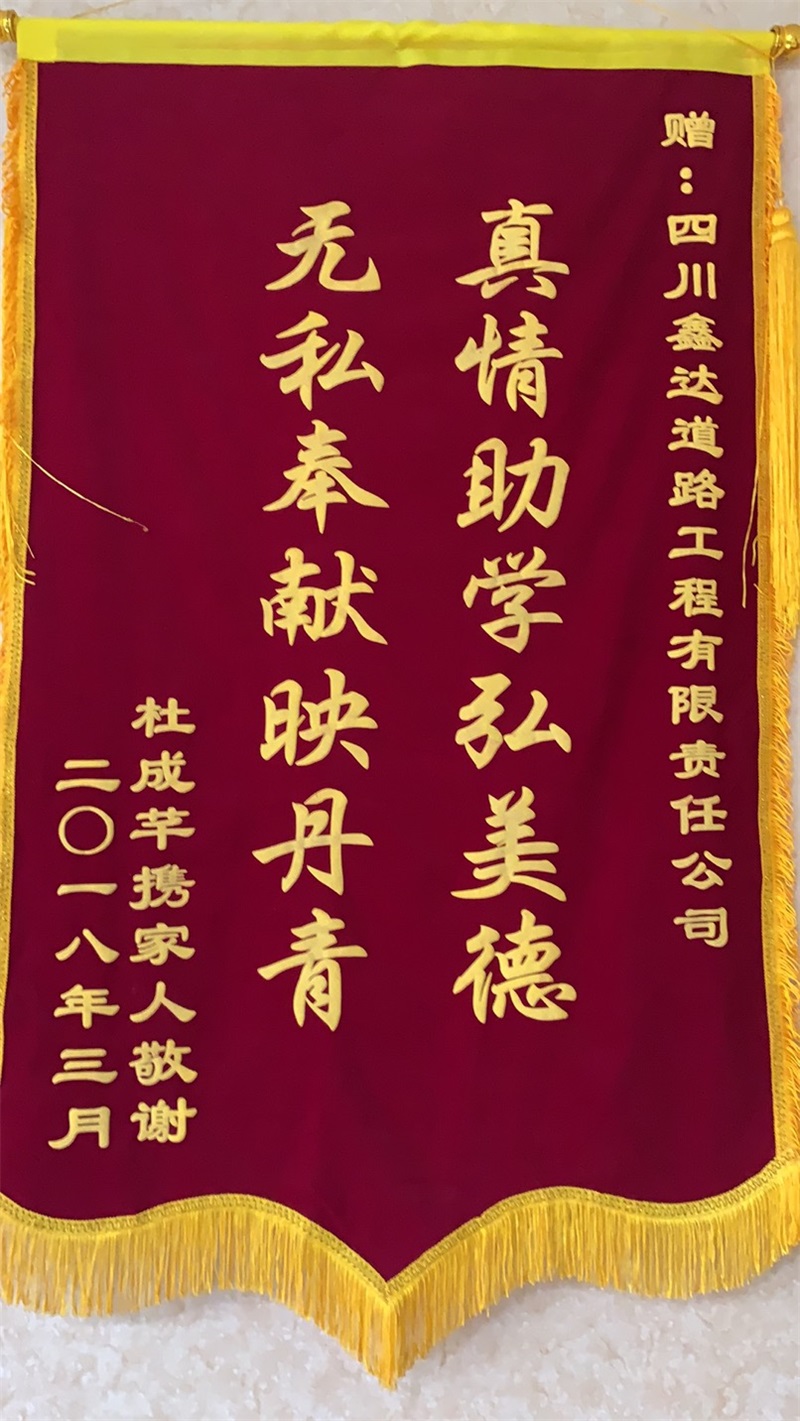 赠：四川鑫达道路工程有限责任公司
真情助学弘美德
无私奉献映丹青
杜成芊携家人敬谢
二〇一八年三月